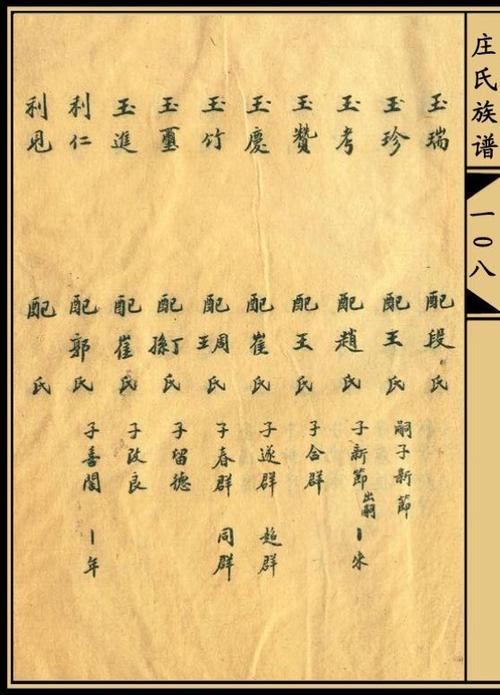 庄氏族谱
一〇八
玉瑞 配段氏
玉珍 配王氏 嗣子新節
玉考 配趙氏 子新節出嗣 丨來
玉贊 配王氏 子合群
玉慶 配崔氏 子遂群 超群
玉竹 配周王氏 子春群 同群
玉璽 配丁孫氏 子留德
玉進 配崔氏 子改良
利仁 配郭氏 子善閣 丨年
利 配 氏